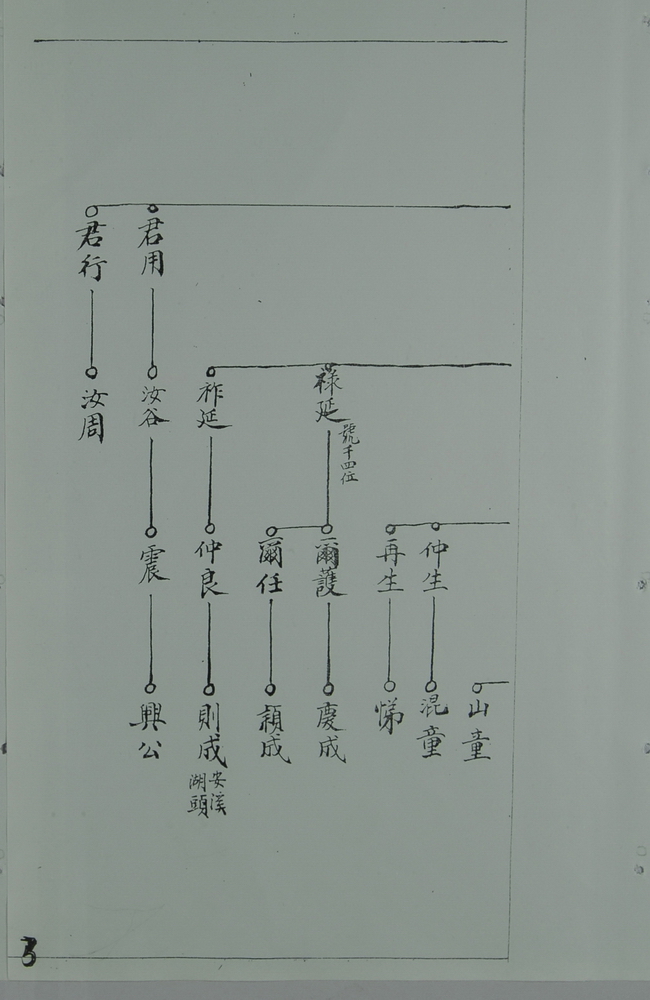 山童
仲生
混童
再生
悌
祿延
號千四位
爾護
慶成
爾任
穎成
祚延
仲良
則成
安溪
湖頭
君用
汝谷
震
興公
君行
汝周
3